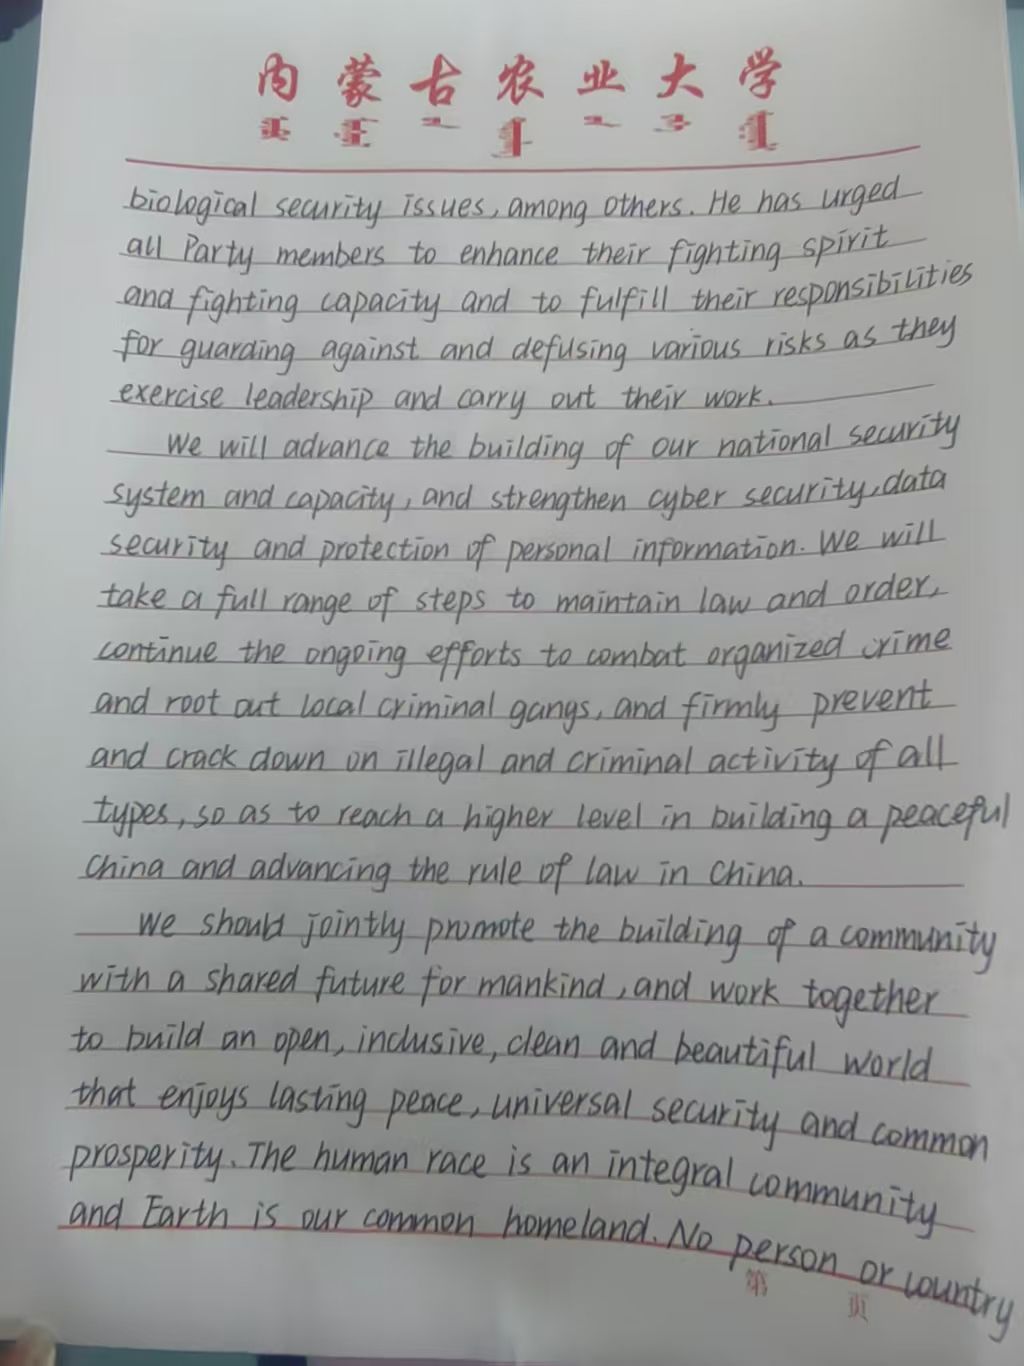 内蒙古农业大学
biological security issues, among others. He has urged
all Party members to enhance their fighting spirit
and fighting capacity and to fulfill their responsibilities
for guarding against and defusing various risks as they
exercise leadership and carry out their work.
We will advance the building of our national security
system and capacity, and strengthen cyber security, data
security and protection of personal information. We will
take a full range of steps to maintain law and order,
continue the ongoing efforts to combat organized crime
and root out local criminal gangs, and firmly prevent
and crack down on illegal and criminal activity of all
types, so as to reach a higher level in building a peaceful
China and advancing the rule of law in China.
We should jointly promote the building of a community
with a shared future for mankind, and work together
to build an open, inclusive, clean and beautiful world
that enjoys lasting peace, universal security and common
prosperity. The human race is an integral community
and Earth is our common homeland. No person or country
第 页